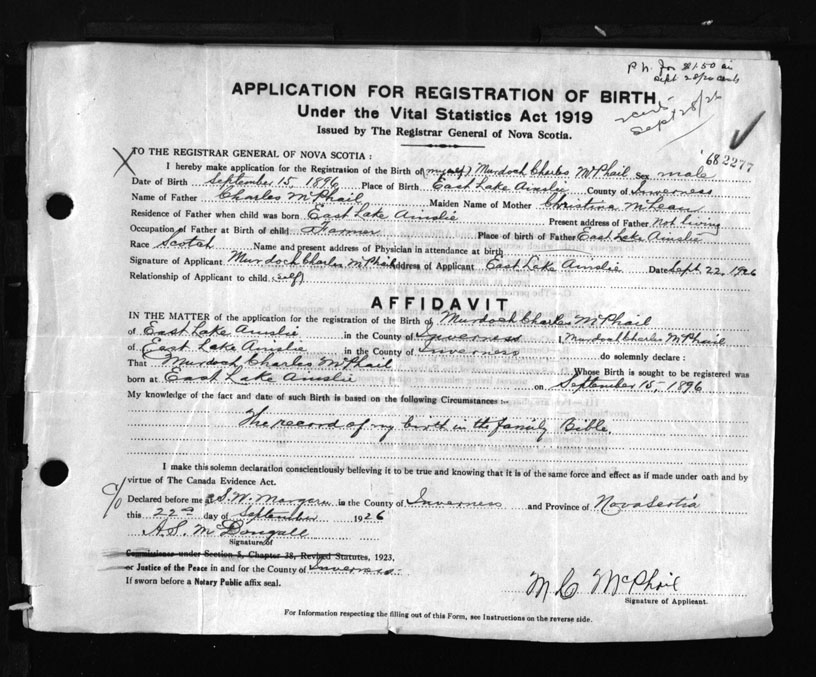 P.N. for $1.50 in
Sept 28/20 cents
APPLICATION FOR REGISTRATION OF BIRTH
Under the Vital Statistics Act 1919
Sept 28/26
Issued by The Registrar General of Nova Scotia.
TO THE REGISTRAR GENERAL OF NOVA SCOTIA :
68 2277
I hereby make application for the Registration of the Birth of (myself) Murdoch Charles McPhail Sex male
Date of Birth September 15, 1896 Place of Birth East Lake Ainslie County of Inverness
Name of Father Charles McPhail Maiden Name of Mother Christina McLean
Residence of Father when child was born East Lake Ainslie Present address of Father Not living
Occupation of Father at Birth of child Farmer Place of birth of Father East Lake Ainslie
Race Scotch Name and present address of Physician in attendance at birth
Signature of Applicant Murdoch Charles McPhail Address of Applicant East Lake Ainslie Date Sept 22, 1926
Relationship of Applicant to child (self)
AFFIDAVIT
IN THE MATTER of the application for the registration of the Birth of Murdoch Charles McPhail
of East Lake Ainslie in the County of Inverness I, Murdoch Charles McPhail
of East Lake Ainslie in the County of Inverness do solemnly declare :
That Murdoch Charles McPhail Whose Birth is sought to be registered was
born at East Lake Ainslie on September 15, 1896
My knowledge of the fact and date of such Birth is based on the following Circumstances :-
The record of my birth in the family Bible.
I make this solemn declaration conscientiously believing it to be true and knowing that it is of the same force and effect as if made under oath and by
virtue of The Canada Evidence Act.
Declared before me at S.W. Margaree in the County of Inverness and Province of Nova Scotia
this 22nd day of September 1926
A.S. McDougall
Signature of
Commissioner under Section 5, Chapter 38, Revised Statutes, 1923,
or Justice of the Peace in and for the County of Inverness
If sworn before a Notary Public affix seal.
M C McPhail
Signature of Applicant.
For Information respecting the filling out of this Form, see Instructions on the reverse side.